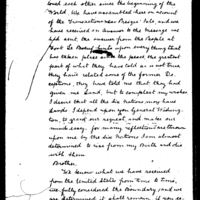 loved each other since the beginning of the
World. We have assembled here on account
of the Transaction near Presque Isle, and we
have received an Answer to the Message we
had sent. the answer from the People at
Fort Le Boeuf upon every thing that
has taken place since the peace. the greatest
part of what they have told us is not true
they have related some of the former De-
ceptions. they have told us that they had
given us Land, but to compleat my wishes
I desire that all the six nations may have
depend upon you General
to grant our request, and make us
easy. for many reflections are thrown
upon me by the six Nations I am almost
determined to rise from my Birth and die
with them.
Brother.
We know what we have received
from the United States from time to time,
we fully considered the Boundary, and we
are determined it shall remain. if you do